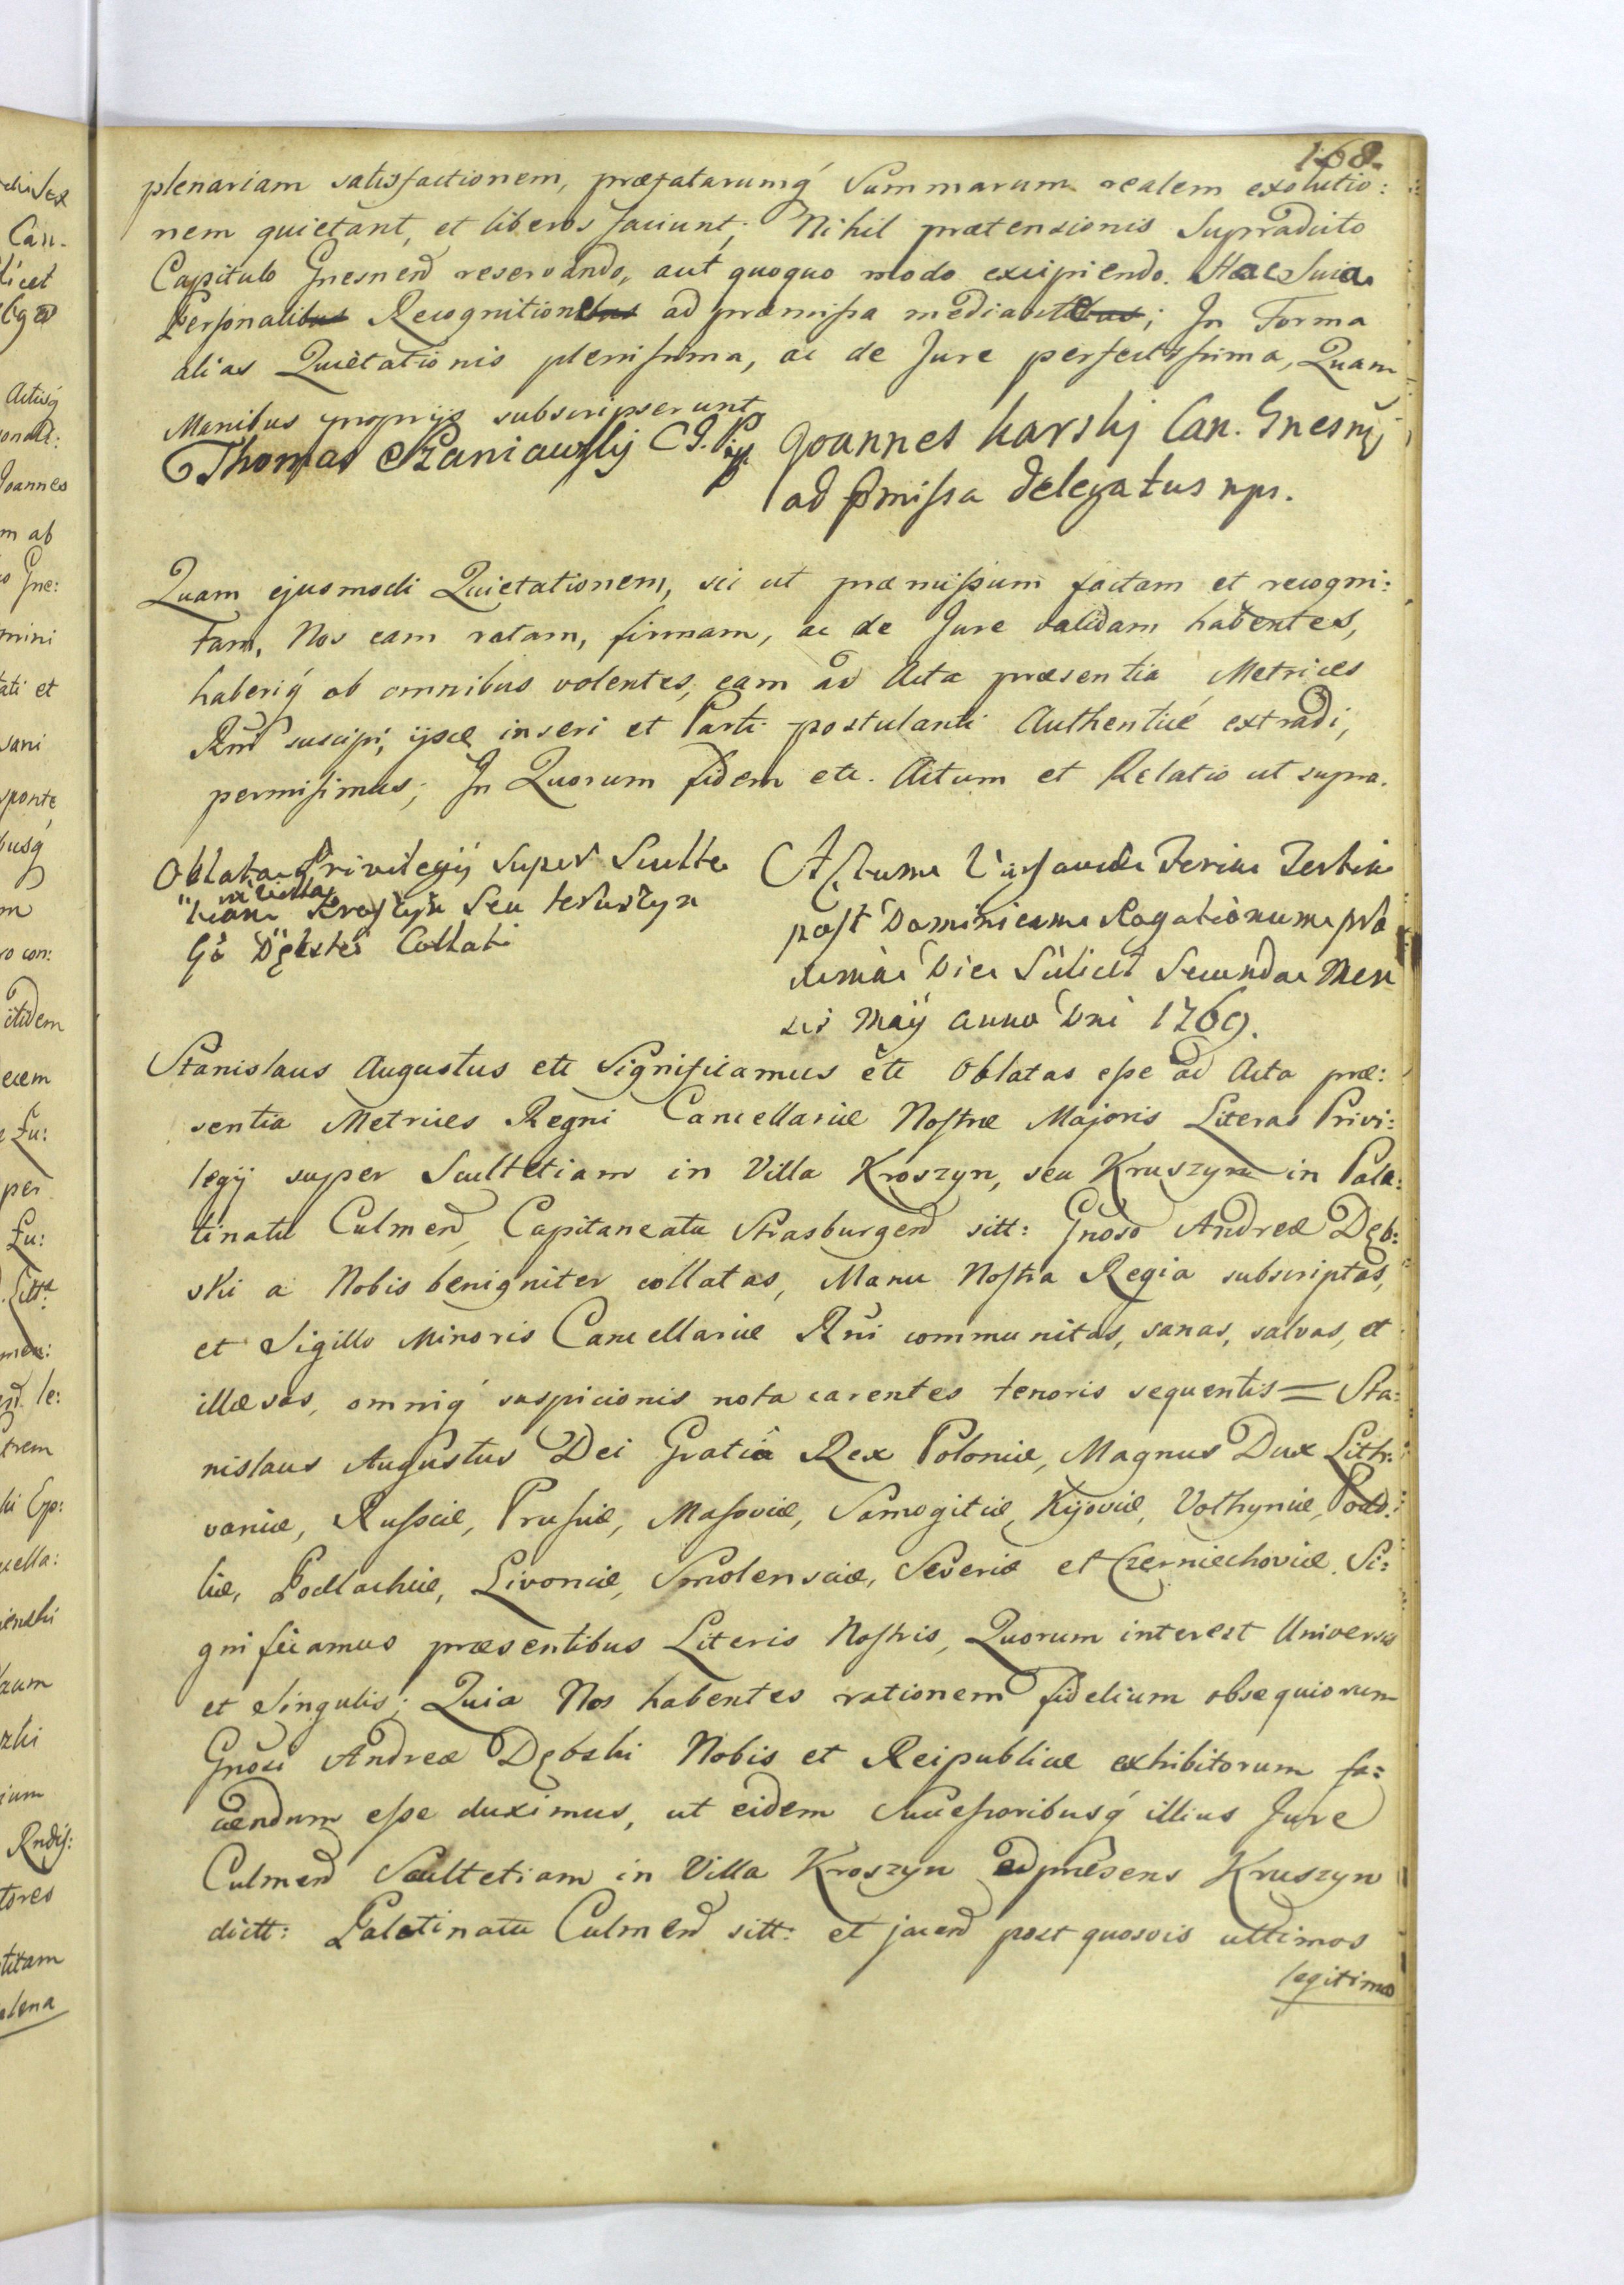 168.
plenariam satisfactionem, præfatarumq́ Summarum realem exolutio:
nem quietant, et liberos faciunt; Nihil prætensionis Supradicto
Capitulo Gnesnen̄ reservando, aut quoquo modo excipiendo. Hac Sua
Personali Recognitione ad præmissa mediante; In Forma
alias Quietationis plenissima, ac de Jure perfectissima, Quam
Manibus proprijs subscripserunt
Thomas Szaniawskij C. G. Joannes Karskj Can. Gnesn̄
ad pmissa delegatus mps.
Quam ejusmodi Quietationem, sic ut præmissum factam et recogni:
tam, Nos eam ratam, firmam, ac de Jure validam habentes,
haberiq́ ab omnibus volentes, eam ad Acta præsentia Metrices
Rn̄i suscipi, ijsq inseri et Parti postulanti Authenticè extradi,
permisimus; In Quorum fidem etc. Actum et Relatio ut supra.
Oblata Privilegij Super Sculte
in Villa
tiam Kroszyn Seu Kruszyn
Gō Dębski Collati
Actum Varsaviæ Feria Tertia
post Dominicam Rogationum pro
xima Die Scilicet Secunda Men
sis Maij anno Dni 1769.
Stanislaus Augustus etc Significamus etc Oblatas esse ad Acta præ:
sentia Metrices Regni Cancellariæ Nostræ Majoris Literas Privi:
legij super Scultetiam in Villa Kroszyn, seu Kruszyn in Pala:
tinatu Culmen̄, Capitaneatu Strasburgen̄ sitt: Gnoso Andreæ Dęb:
ski a Nobis benigniter collatas, Manu Nostra Regia subscriptas,
et Sigillo Minoris Cancellariæ Rn̄i communitas, sanas, salvas, et
illæsas, omniq́ suspicionis nota carentes tenoris sequentis = Sta:
nislaus Augustus Dei Gratiâ Rex Poloniæ, Magnus Dux Lith:
vaniæ, Russiæ, Prussiæ, Masoviæ, Samogitiæ, Kijoviæ, Volhyniæ, Podo:
liæ, Podlachiæ, Livoniæ, Smolensciæ, Severiæ et Czerniechoviæ. Si:
gnificamus præsentibus Literis Nostris, Quorum interest Universis
et Singulis; Quia Nos habentes rationem fidelium obsequiorum
Gnosi Andreæ Dębski Nobis et Reipublicæ exhibitorum fa:
ciendum esse duximus, ut eidem Successoribusq́ illius Jure
Culmen̄ Scultetiam in Villa Kroszyn ad præsens Kruszyn
dictt: Palatinatu Culmen̄ sitt: et jacen̄ post quosvis ultimos
legitimos